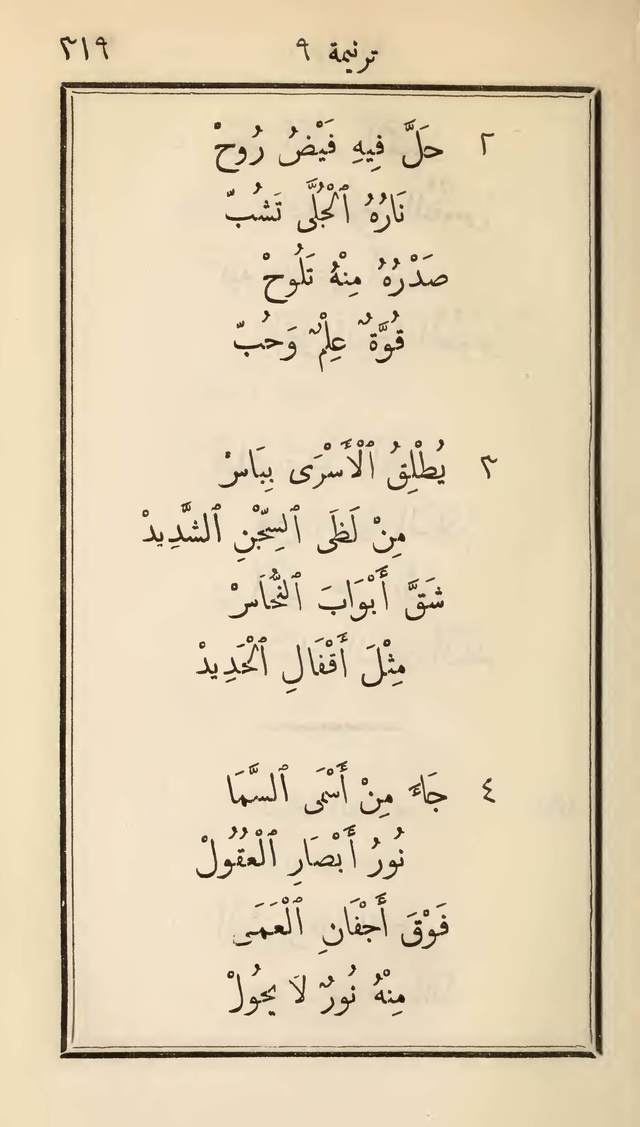 ترنيمة ٩
٣١٩
٢ حَلَّ فِيهِ فَيْضُ رُوحْ
نَارُهُ ٱلْجُلَّى تَشُبّ
صَدْرُهُ مِنْهُ تَلُوحْ
قُوَّةٌ عِلْمٌ وَحُبّ
٣ يُطْلِقُ ٱلْأَسْرَى بِبَاسْ
مِنْ لَظَى ٱلسِّجْنِ ٱلشَّدِيدْ
شَقَّ أَبْوَابَ ٱلنُّحَاسْ
مِثْلَ أَقْفَالِ ٱلْحَدِيدْ
٤ جَاءَ مِنْ أَسْمَى ٱلسَّمَا
نُورُ أَبْصَارِ ٱلْعُقُولْ
فَوْقَ أَجْفَانِ ٱلْعَمَى
مِنْهُ نُورٌ لَا يَحُولْ